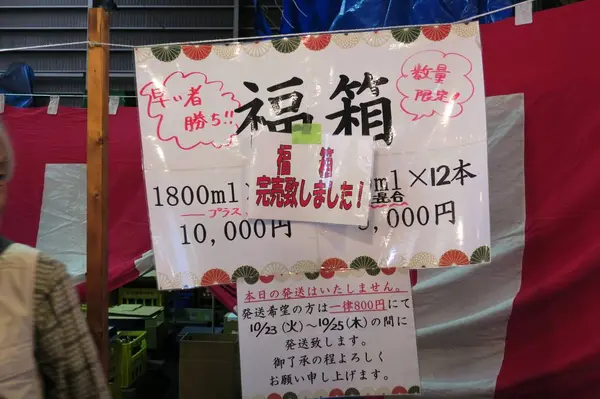 早い者
勝ち!!
福箱
数量
限定!
福箱
完売致しました!
1800ml
ml×12本
プラス
混合
10,000円
,000円
本日の発送はいたしません。
発送希望の方は一律800円にて
10/23(火)～10/25(木)の間に
発送致します。
御了承の程よろしく
お願い申し上げます。